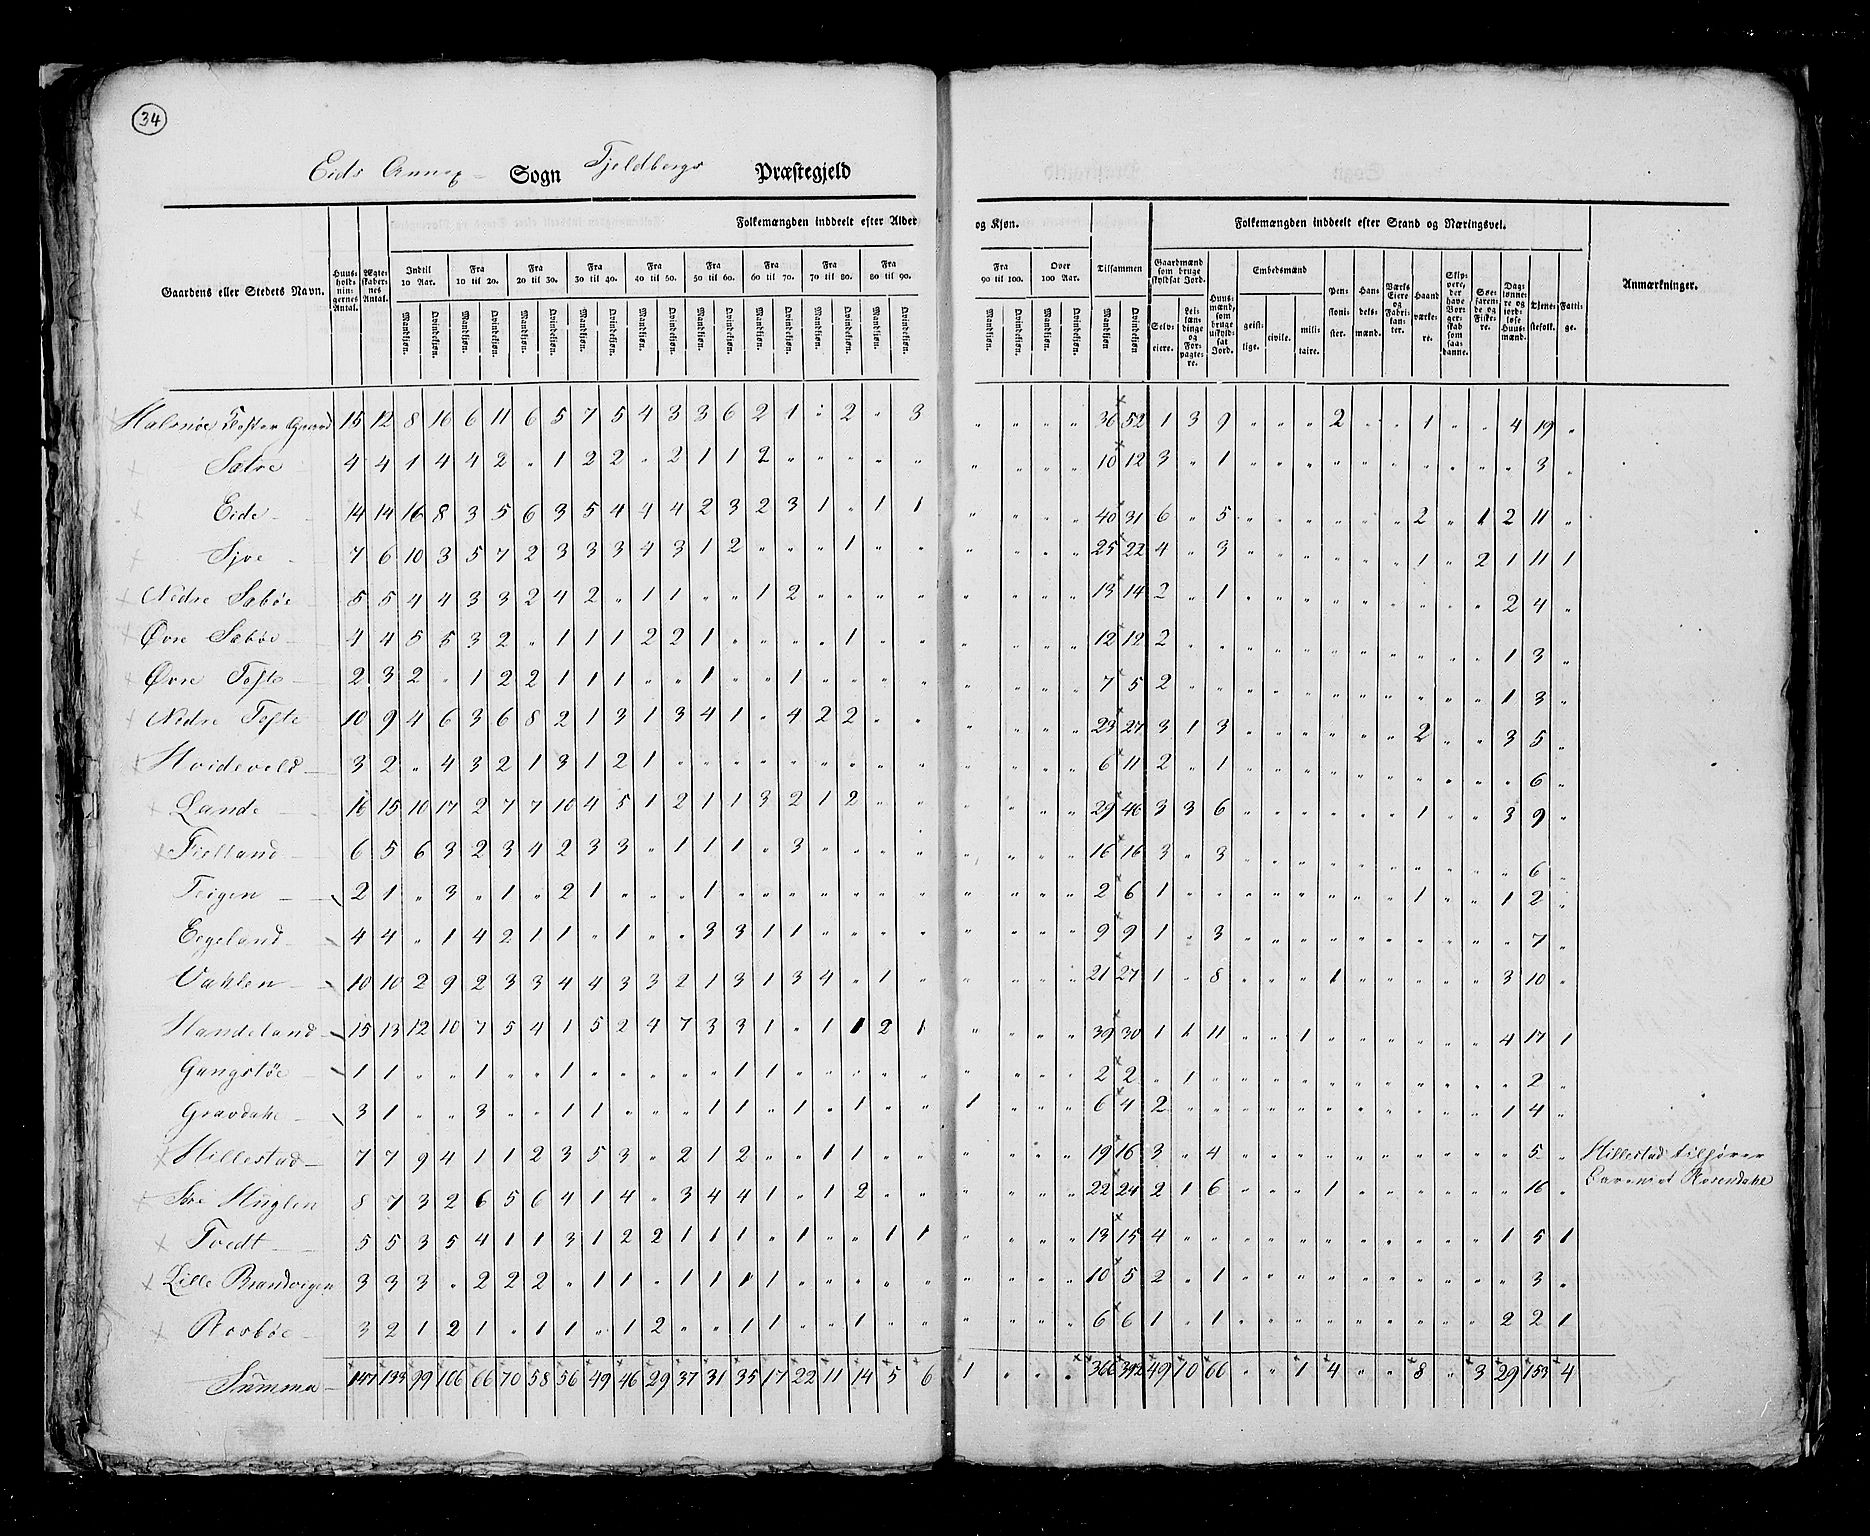 34
Eids Annex Sogn Fjeldbergs Præstegjeld
Gaardens eller Stedets Navn.
Huus-holdnin-gernes Antal.
Ægte-skaber-nes Antal.
Folkemængden inddeelt efter Alder og Kjøn.
Indtil 10 Aar. Fra 10 til 20. Fra 20 til 30. Fra 30 til 40. Fra 40 til 50. Fra 50 til 60. Fra 60 til 70. Fra 70 til 80. Fra 80 til 90. Fra 90 til 100. Over 100 Aar. Tilsammen
Mandkjøn. Qvindekjøn. Mandkjøn. Qvindekjøn. Mandkjøn. Qvindekjøn. Mandkjøn. Qvindekjøn. Mandkjøn. Qvindekjøn. Mandkjøn. Qvindekjøn. Mandkjøn. Qvindekjøn. Mandkjøn. Qvindekjøn. Mandkjøn. Qvindekjøn. Mandkjøn. Qvindekjøn. Mandkjøn. Qvindekjøn. Mandkjøn Qvindekjøn.
Folkemængden inddeelt efter Stand og Næringsvei.
Gaardmænd som bruge skyldsat Jord.
Selv-eiere.
Lei-læn-dinge og For-pagte-re.
Huus-mænd, som bruge uskyldsat Jord.
Embedsmænd
geist-lige. civile. mili-taire.
Pen-sioni-ster.
Han-dels-mænd.
Værks Eiere og Fabri-kan-ter.
Haand værke-re.
Skip-pere, der have Bor-ger-skab som saa-danne.
Søe-faren-de og Fiske-re.
Dag-lønne-re og jord-løse Huus-mænd.
Tjene-stefolk.
Fatti-ge.
Anmærkninger.
Halsnøe Closter Gaard 15 12 8 16 6 11 6 5 7 5 4 3 3 6 2 1 " 2 " 3 " " " " 36 52 1 3 9 " " " 2 " " 1 " " 4 19 "
Sætre 4 4 1 4 4 2 " 1 2 2 " 2 1 1 2 " " " " " " " " " 10 12 3 " 1 " " " " " " " " " " 3 "
Eide 14 14 16 8 3 5 6 3 5 4 4 4 2 3 2 3 1 " 1 1 " " " " 40 31 6 " 5 " " " " " " 2 " 1 2 11 "
Sjoe 7 6 10 3 5 7 2 3 3 3 4 3 1 2 " " " 1 " " " " " " 25 22 4 " 3 " " " " " " 1 " 2 1 11 1
Nedre Sæbøe 5 5 4 4 3 3 2 4 2 " 1 1 " " 1 2 " " " " " " " " 13 14 2 " 1 " " " " " " " " " 2 4 "
Øvre Sæbøe 4 4 5 5 3 2 " 1 1 1 2 2 1 " " " " 1 " " " " " " 12 12 2 " " " " " " " " " " " 1 3 "
Øvre Tofte 2 3 2 " 1 2 2 1 1 1 " " 1 " " 1 " " " " " " " " 7 5 2 " " " " " " " " " " " 1 3 "
Nedre Tofte 10 9 4 6 3 6 8 2 1 3 1 3 4 1 " 4 2 2 " " " " " " 23 27 3 1 3 " " " " " " 2 " " 3 5 "
Hvidevold 3 2 " 4 3 2 1 3 1 2 1 " " " " " " " " " " " " " 6 11 2 " 1 " " " " " " " " " " 6 "
Lande 16 15 10 17 2 7 7 10 4 5 1 2 1 1 3 2 1 2 " " " " " " 29 46 3 3 6 " " " " " " 1 " " 3 9 "
Fielland 6 5 6 3 2 3 4 2 3 3 " 1 1 1 " 3 " " " " " " " " 16 16 3 " 3 " " " " " " " " " " 6 "
Teigen 2 1 " 3 " 1 " 2 1 " " " 1 " " " " " " " " " " " 2 6 1 " " " " " " " " 1 " " 1 2 "
Eegeland 4 4 " 1 4 2 1 1 " 1 " " 3 3 1 1 " " " " " " " " 9 9 1 " 3 " " " " " " " " " " 7 "
Vahlen 10 10 2 9 2 3 3 4 4 3 3 2 1 3 1 3 4 " 1 " " " " " 21 27 1 " 8 " " " 1 " " " " " 3 10 "
Handeland 15 13 12 10 7 5 4 1 5 2 4 7 3 3 1 " 1 1 2 1 " " " " 39 30 1 1 11 " " 1 " " " " " " 4 17 1
Gangstöe 1 1 " " 1 " " 1 " " " " " 1 1 " " " " " " " " " 2 2 " 1 " " " " " " " " " " " 2 "
Gravdahl 3 1 " " 3 " " 1 1 " " " 1 1 " 1 " 1 " " 1 " " " 6 4 2 " " " " " " " " " " " 1 4 "
Hillestad 7 7 9 4 1 1 2 3 5 3 " 2 1 2 " " 1 1 " " " " " " 19 16 3 " 4 " " " " " " " " " " 5 " Hillestad tilhører
Baroniet Rosendahl
Hüglen 8 7 3 2 6 5 6 4 1 4 " 3 4 4 1 " 1 2 " " " " " " 22 24 2 1 6 " " " 1 " " " " " " 16 "
Tvedt 5 5 3 5 4 1 1 3 1 2 2 1 1 1 " 1 " " 1 1 " " " " 13 15 4 " " " " " " " " " " " 1 5 1
Lille Brandvigen 3 3 3 " 2 2 2 " 1 1 " 1 1 1 1 " " " " " " " " " 10 5 2 " 1 " " " " " " " " " " 3 "
Rosbøe 3 2 1 2 1 " 1 1 " 1 2 " " 1 1 " " 1 " " " " " " 6 6 1 " 1 " " " " " " " " " 2 2 1
Summa 147 133 99 106 66 70 58 56 49 46 29 37 31 35 17 22 11 14 5 6 1 " " " 366 392 49 10 66 " " 1 4 " " 8 " 3 29 153 4